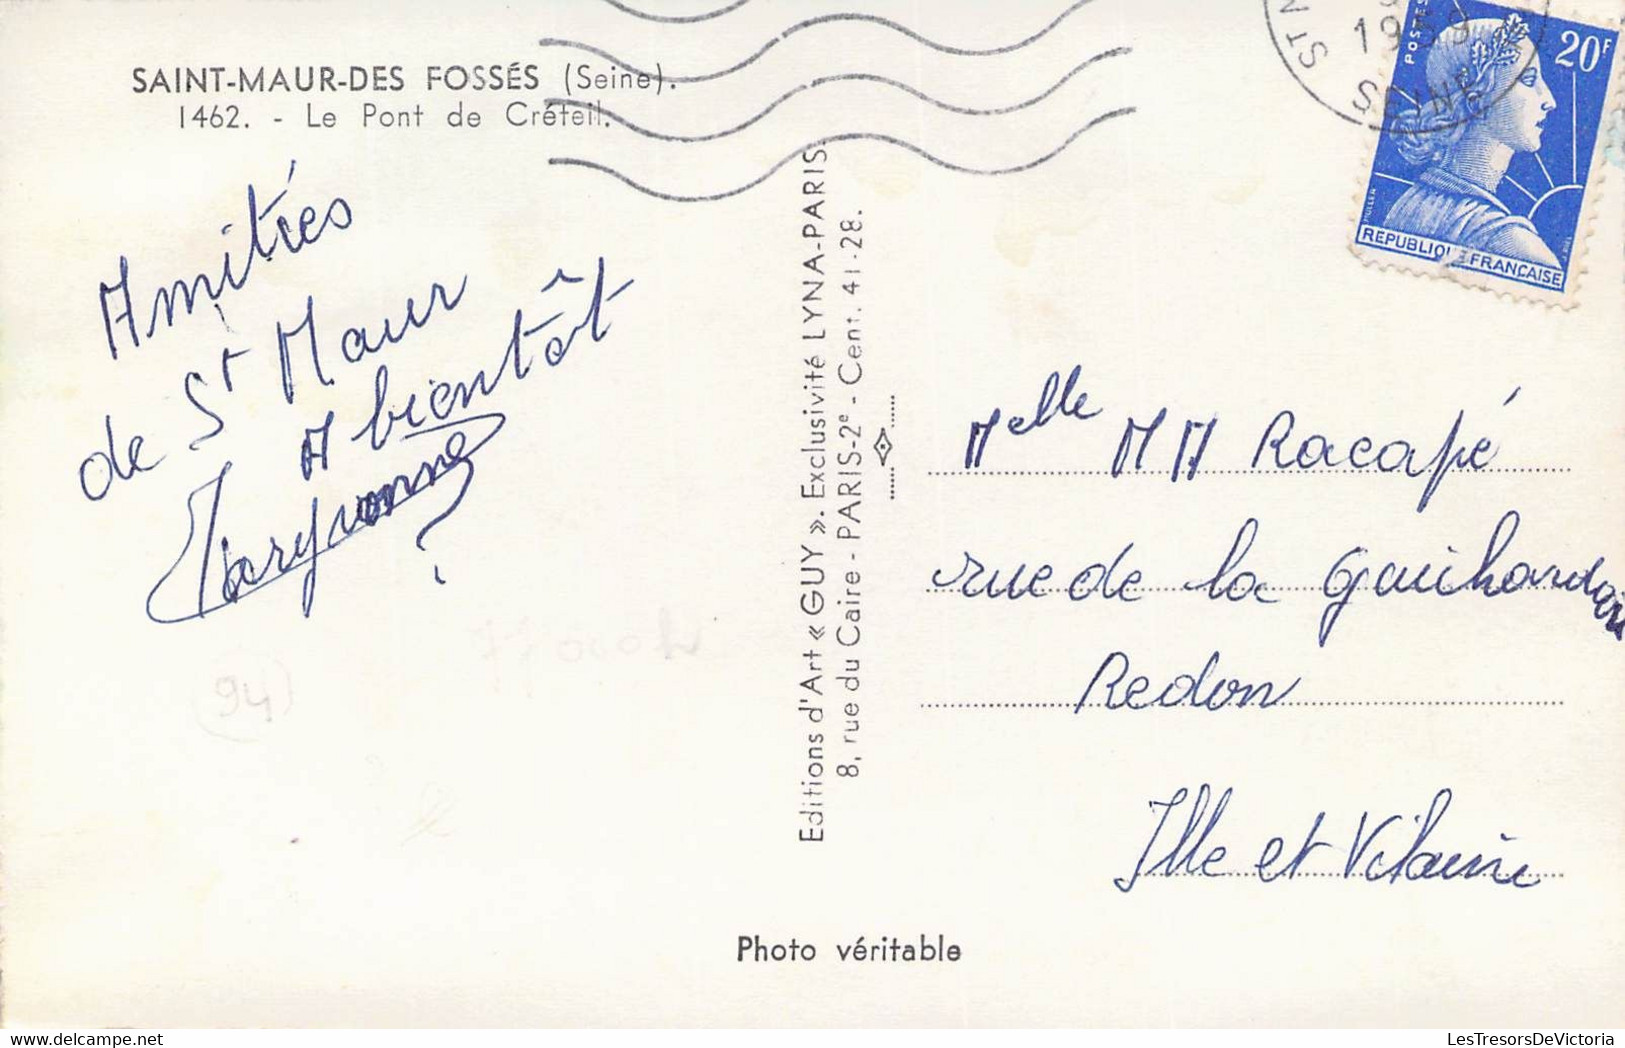 SAINT-MAUR-DES FOSSÉS (Seine).
1462. - Le Pont de Créteil.
Amitiés
de St Maur
A bientôt
Maryvonne
?
(94)
Editions d'Art « GUY ». Exclusivité LYNA-PARIS.
8, rue du Caire - PARIS-2e - Cent. 41-28.
ST
1959
SEINE
POSTES
20F
MULLER
REPUBLIQUE FRANÇAISE
Melle MM Racapé
rue de la Guichardais
Redon
Ille et Vilaine
Photo véritable
LesTresorsDeVictoria